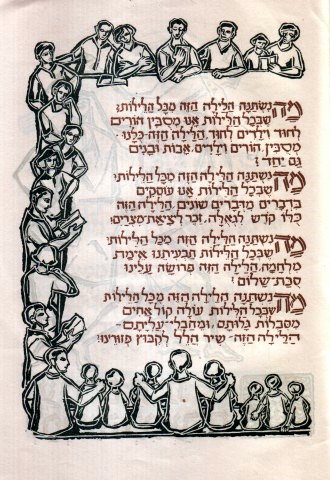 מה נשתנה הלילה הזה מכל הלילות?
שבכל הלילות אנו מסבין הורים
לחוד וילדים לחוד, הלילה הזה כלנו
מסבין, הורים וילדים, אבות ובנים
גם יחד?
מה נשתנה הלילה הזה מכל הלילות?
שבכל הלילות אנו עוסקים
בדברים מדברים שונים, הלילה הזה
כלו קדש לגאולה, זכר ליציאת מצרים?
מה נשתנה הלילה הזה מכל הלילות?
שבכל הלילות תבעיתנו אימת
מלחמה, הלילה הזה פרושה עלינו
סכת-שלום?
מה נשתנה הלילה הזה מכל הלילות
שבכל הלילות עולה קול אחים
מסבלות גלותם, ומחבלי עליתם-
הלילה הזה- שיר הלל לקבוץ פזורינו?